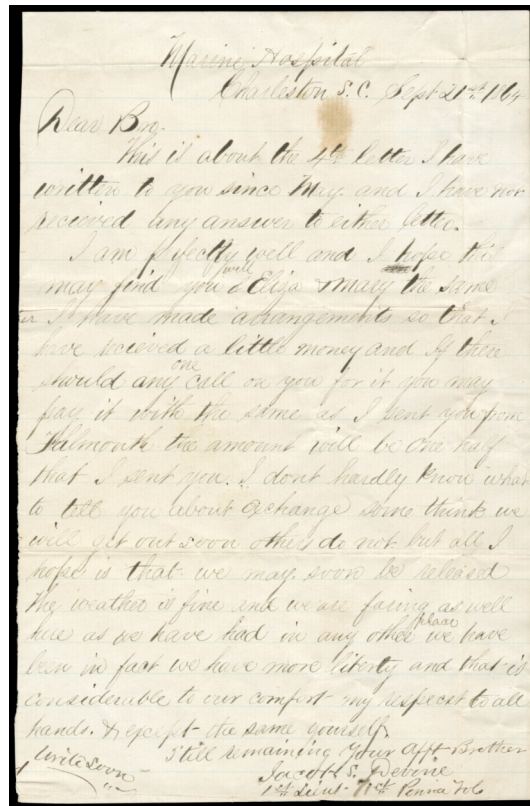 Marine Hospital
Charleston S.C. Sept 21st 1864
Dear Bro.
This is about the 4th letter I have
written to you since May. and I have not
recieved any answer to either letter.
I am pfectly well and I hope this
may find you & will Eliza & Mary the same
I have made arrangements so that I
have recieved a little money and if there
should any one call on you for it you may
pay it with the same as I sent you from
Falmouth the amount will be one half
that I sent you. I dont hardly know what
to tell you about exchange some think we
will get out soon others do not but all I
hope is that we may soon be released
the weather is fine and we are faring as well
here as we have had in any other place we have
been in fact we have more liberty and that is
considerable to our comfort my respects to all
hands. & except the same yourself.
Still remaining Your Afft Brother
Write soon
Jacob S. Devine
1st Lieut. 71st Penna Vols